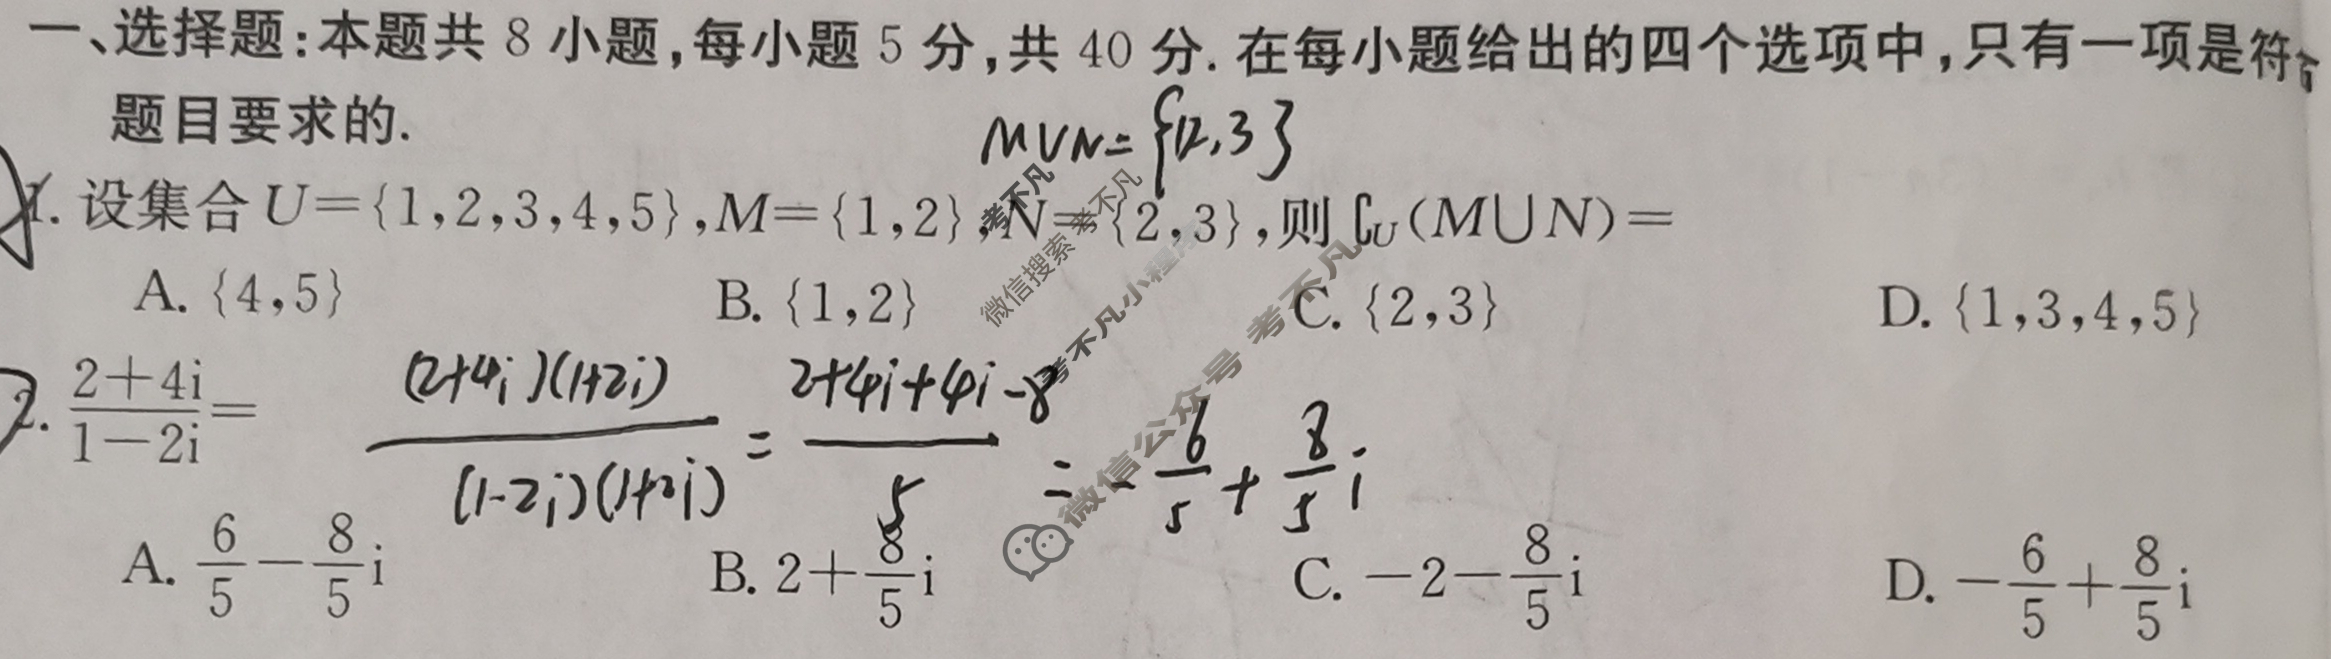 一、选择题:本题共 8 小题,每小题 5 分,共 40 分. 在每小题给出的四个选项中,只有一项是符合
题目要求的.
M∪N={1,2,3}
1. 设集合 U={1,2,3,4,5},M={1,2},N={2,3},则 ∁U(M∪N)=
A. {4,5} B. {1,2} C. {2,3} D. {1,3,4,5}
2. (2+4i)/(1-2i)=
(2+4i)(1+2i)/(1-2i)(1+2i) = 2+4i+4i-8/5 = -6/5+8/5i
A. 6/5-8/5i B. 2+8/5i C. -2-8/5i D. -6/5+8/5i
考不凡
微信搜索 考不凡
考不凡小程序
微信公众号 考不凡